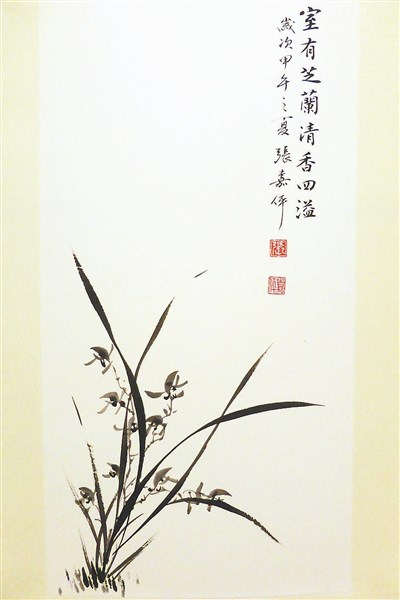 室有芝蘭清香四溢
歲次甲午之夏張嘉伻